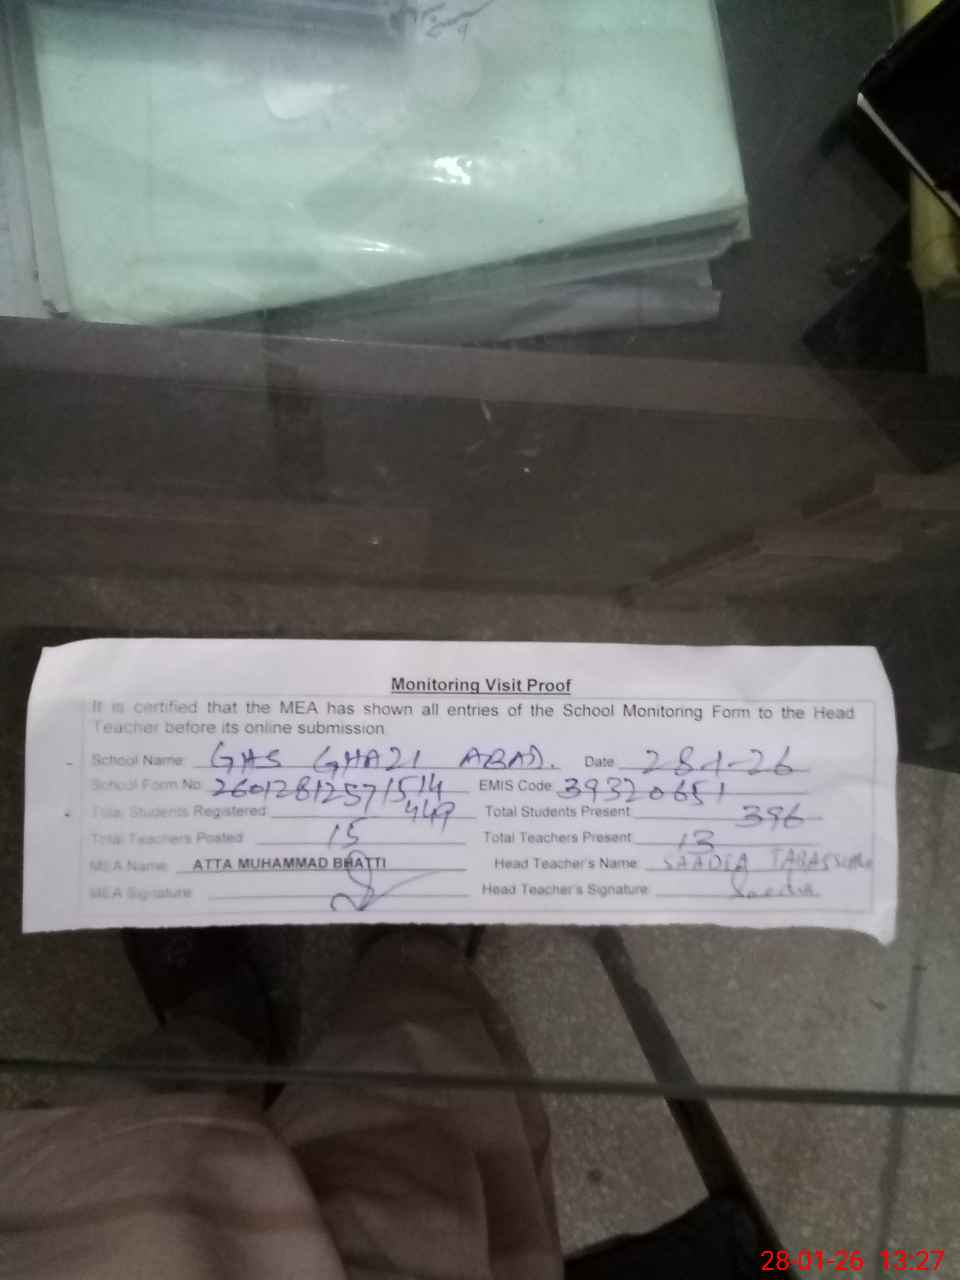 Monitoring Visit Proof
It is certified that the MEA has shown all entries of the School Monitoring Form to the Head
Teacher before its online submission.
School Name: GHS GHAZI ABAD. Date 28-1-26
School Form No. 26012812571514 EMIS Code 39320651
Total Students Registered 449 Total Students Present 396
Total Teachers Posted 15 Total Teachers Present 13
MEA Name ATTA MUHAMMAD BHATTI Head Teacher's Name SAADIA TABASSUM
MEA Signature Head Teacher's Signature Saadia
28-01-26 13:27